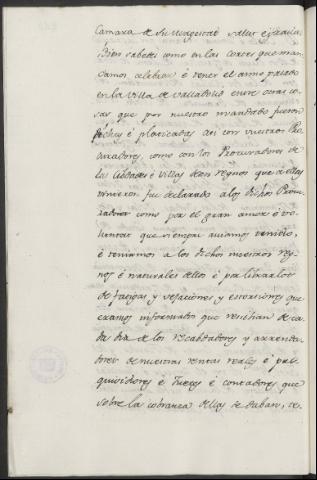 Camara de Su magestad salud e gracia
Bien sabedes como en las Cortes que man
damos celebrar e tener el anno pasado
en la Villa de Valladolid entre otras co
sas que por nuestro mandado fueron
fechas e platicadas asi con vuestros Pro
curadores como con los Procuradores de
las Ciudades e Villas destos regnos que a ellas
vinieron fue declarado a los dichos Procu
radores como por el gran amor e vo
luntat que siempre aviamos tenido,
e teniamos a los dichos nuestros reg
nos e naturales dellos e por librarlos
de fatigas y vejaciones y estorsiones que
eramos informados que resibian de ca
da dia de los Recabdadores y arrenda
dores de nuestras rentas reales e pes
quisidores e Jueces e contadores que
sobre la cobranza dellas se daban, es.